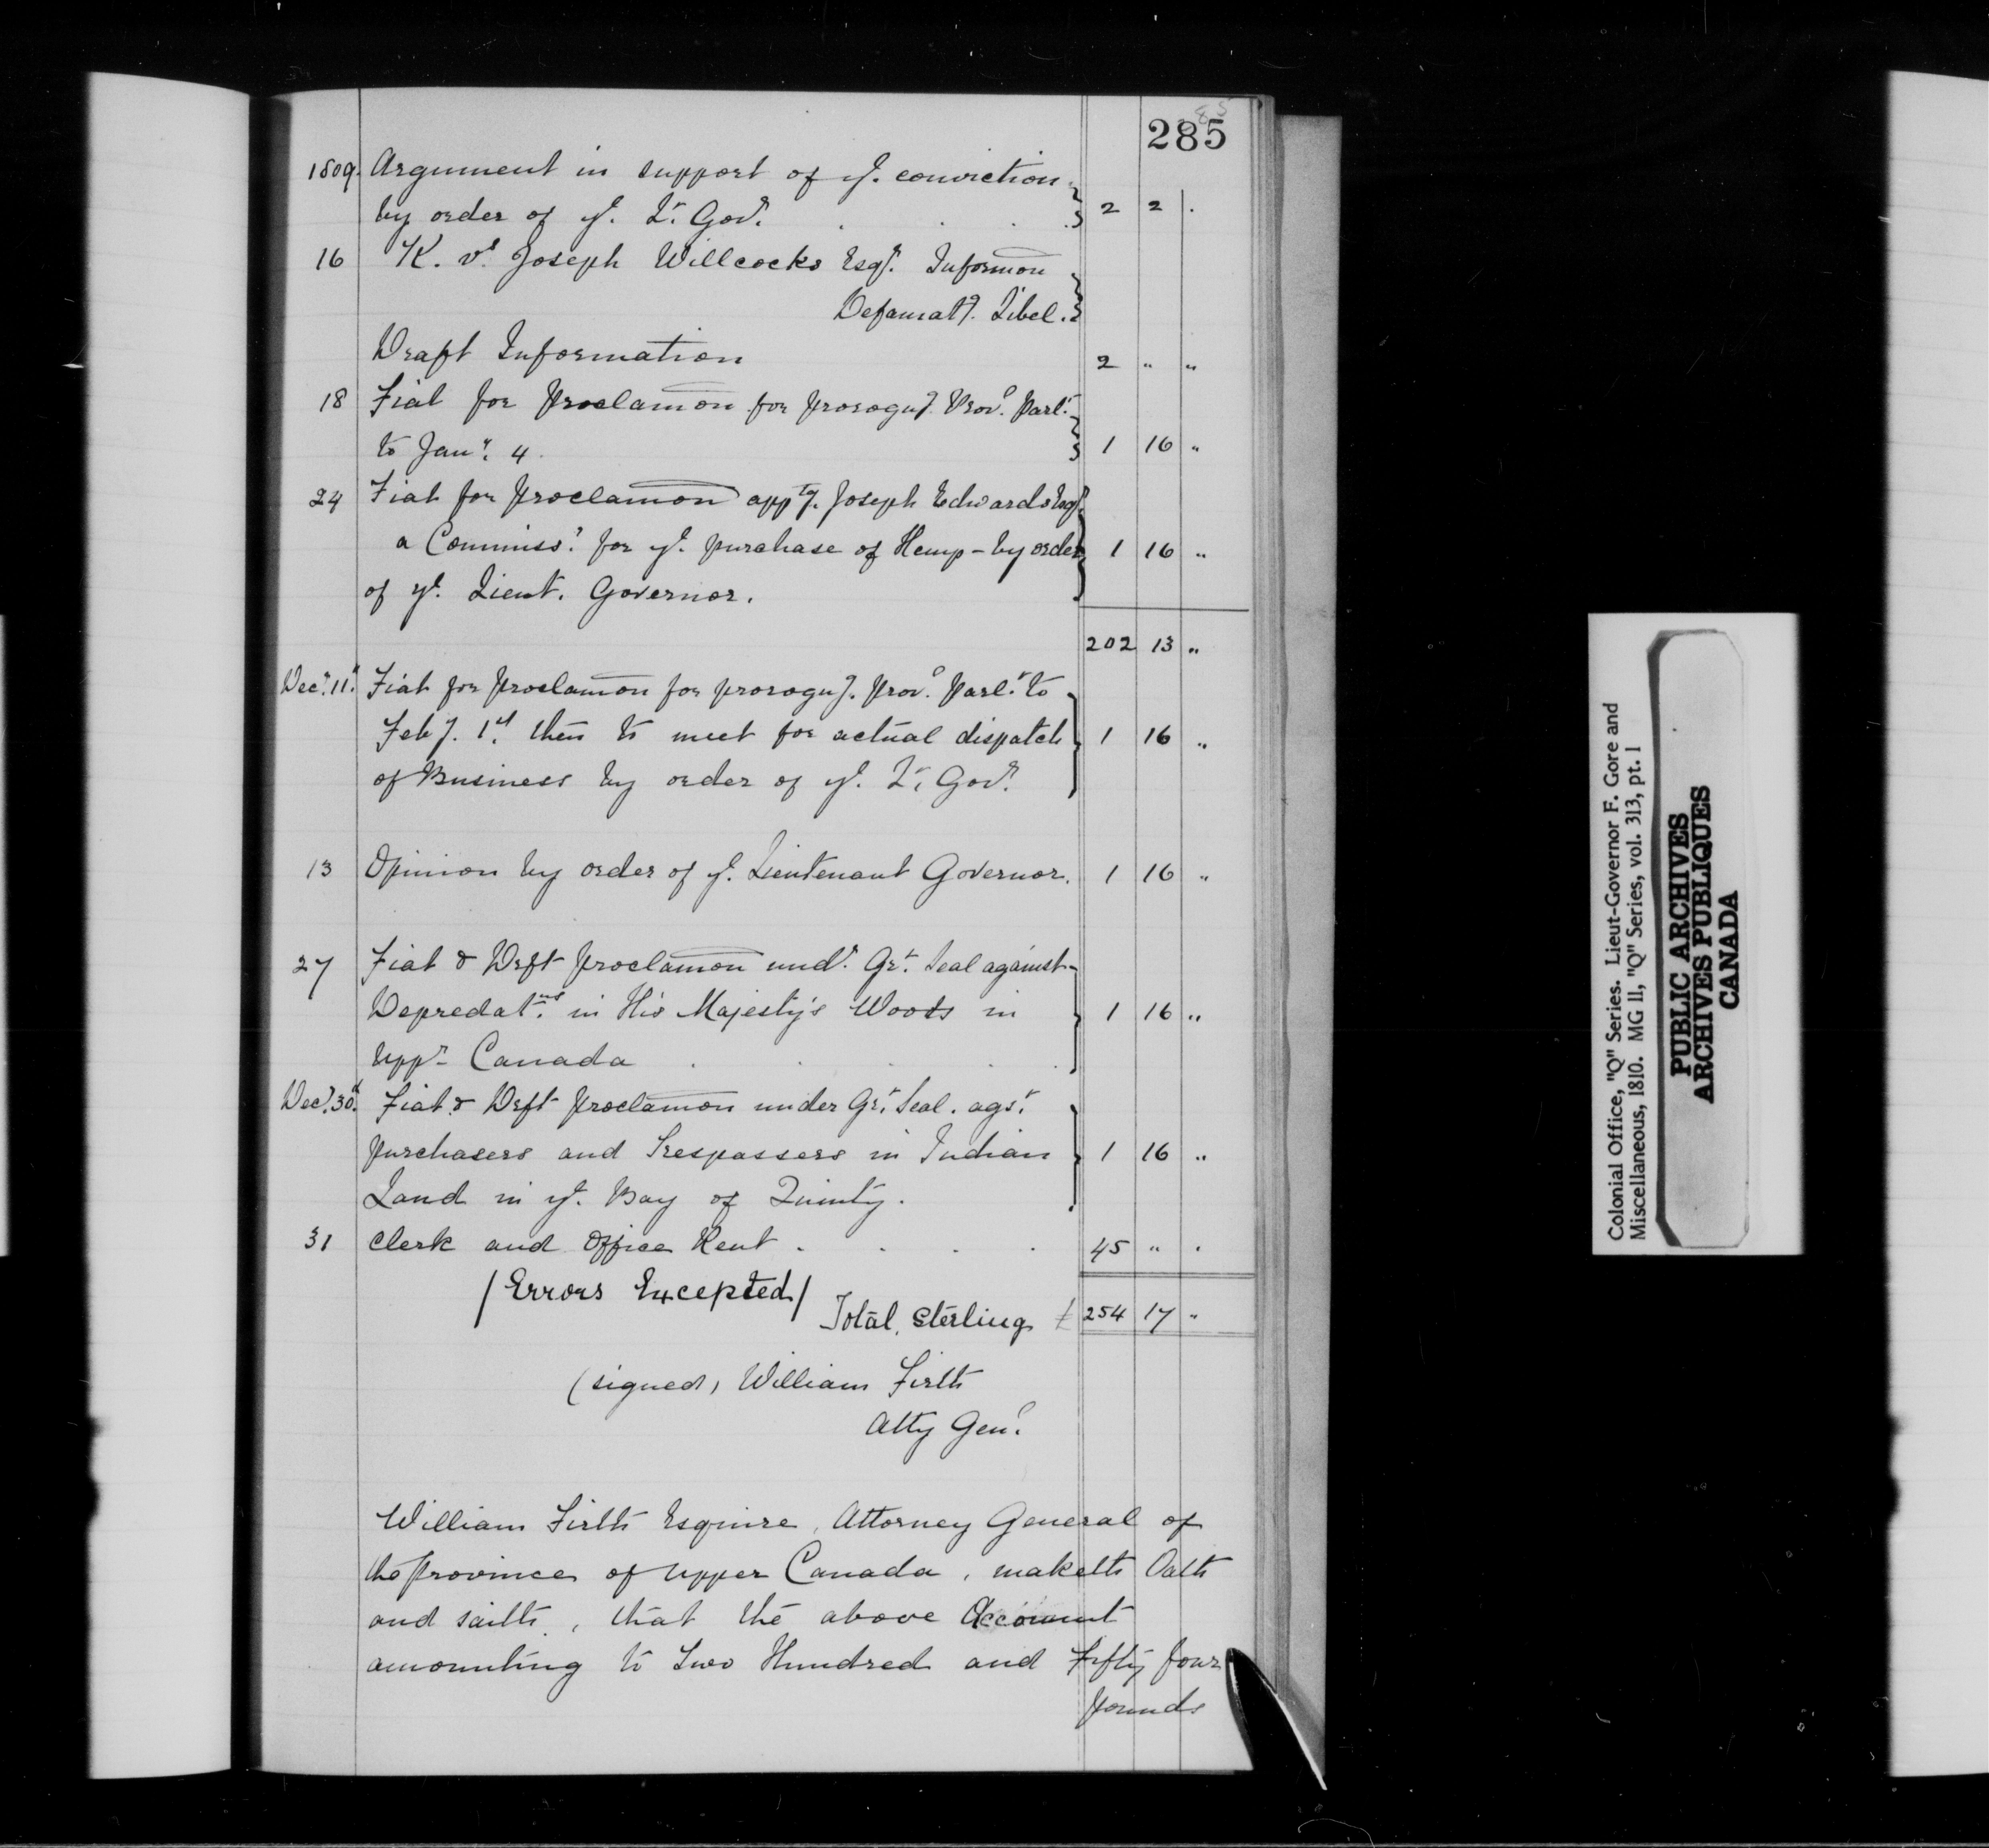 285
1809. Argument in support of ye. conviction
by order of ye. Lt. Govr. . . . 2 2 .
16 K. vs. Joseph Willcocks Esqr. Informon
Defamaty. Libel.
Draft Information 2 " "
18 Fiat for Proclamon for prorogug. Provl. Parlt.
to Jany. 4. 1 16 "
24 Fiat for Proclamon apptg. Joseph Edwards Esqr.
a Commissr. for ye. purchase of Hemp - by order 1 16 "
of ye. Lieut. Governor.
202 13 "
Decr. 11th. Fiat for Proclamon for prorogug. Provl. Parlt. to
Feby. 1st. then to meet for actual dispatch 1 16 "
of Business by order of ye. Lt. Govr.
13 Opinion by order of ye. Lieutenant Governor. 1 16 "
27 Fiat & Drft Proclamon undr. Grt. Seal against
Depredatns. in His Majesty's Woods in 1 16 "
Uppr Canada . . . .
Decr. 30th. Fiat & Drft Proclamon under Grt. Seal. agst.
purchasers and Trespassers in Indian 1 16 "
Land in ye. Bay of Quinty.
31 Clerk and Office Rent . . . . 45 " .
/Errors Excepted/
Total Sterling £ 254 17 "
(signed) William Firth
Atty Genl.
William Firth Esquire, Attorney General of
the Province of Upper Canada, maketh Oath
and saith, that the above Account
amounting to Two Hundred and Fifty four
pounds
Colonial Office, "Q" Series. Lieut-Governor F. Gore and
Miscellaneous, 1810. MG 11, "Q" Series, vol. 313, pt. 1
PUBLIC ARCHIVES
ARCHIVES PUBLIQUES
CANADA